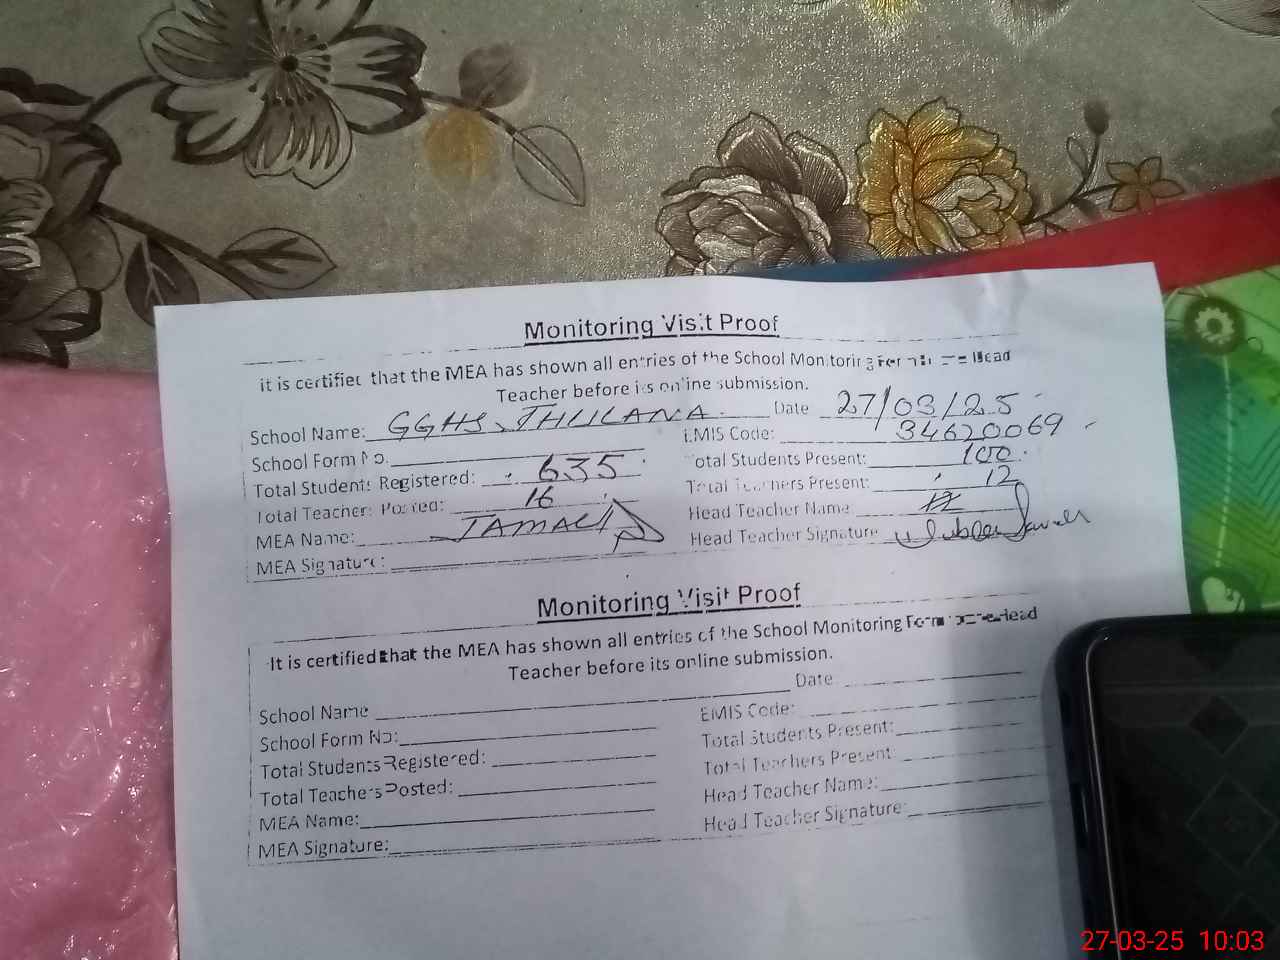 Monitoring Visit Proof
it is certified that the MEA has shown all entries of the School Monitoring Head
Teacher before its online submission.
School Name: GGHS Date 27/03/25
School Form No. EMIS Code: 34620069
Total Students Registered: 635 Total Students Present: 100
Total Teachers Posted: 16 Total Teachers Present: 12
MEA Name: JAMAL Head Teacher Name
MEA Signature: Head Teacher Signature
Monitoring Visit Proof
It is certified that the MEA has shown all entries of the School Monitoring Form Head
Teacher before its online submission.
School Name Date
School Form No: EMIS Code:
Total Students Registered: Total Students Present:
Total Teachers Posted: Total Teachers Present
MEA Name: Head Teacher Name:
MEA Signature: Head Teacher Signature:
27-03-25 10:03